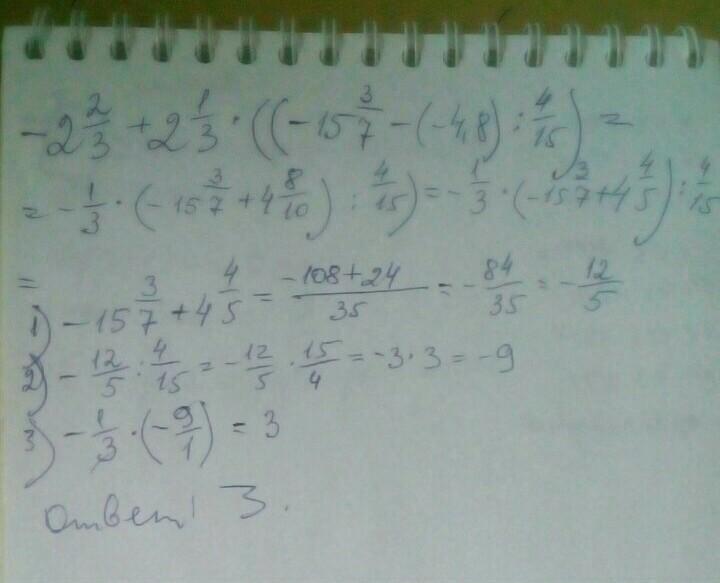 -2 2/3 + 2 1/3 · ((-15 3/7 - (-4,8) : 4/15) =
= -1/3 · (-15 3/7 + 4 8/10) : 4/15) = -1/3 · (-15 3/7 + 4 4/5) : 4/15
=
1) -15 3/7 + 4 4/5 = (-108+24)/35 = -84/35 = -12/5
2) -12/5 : 4/15 = -12/5 · 15/4 = -3·3 = -9
3) -1/3 · (-9/1) = 3
ответ! 3.